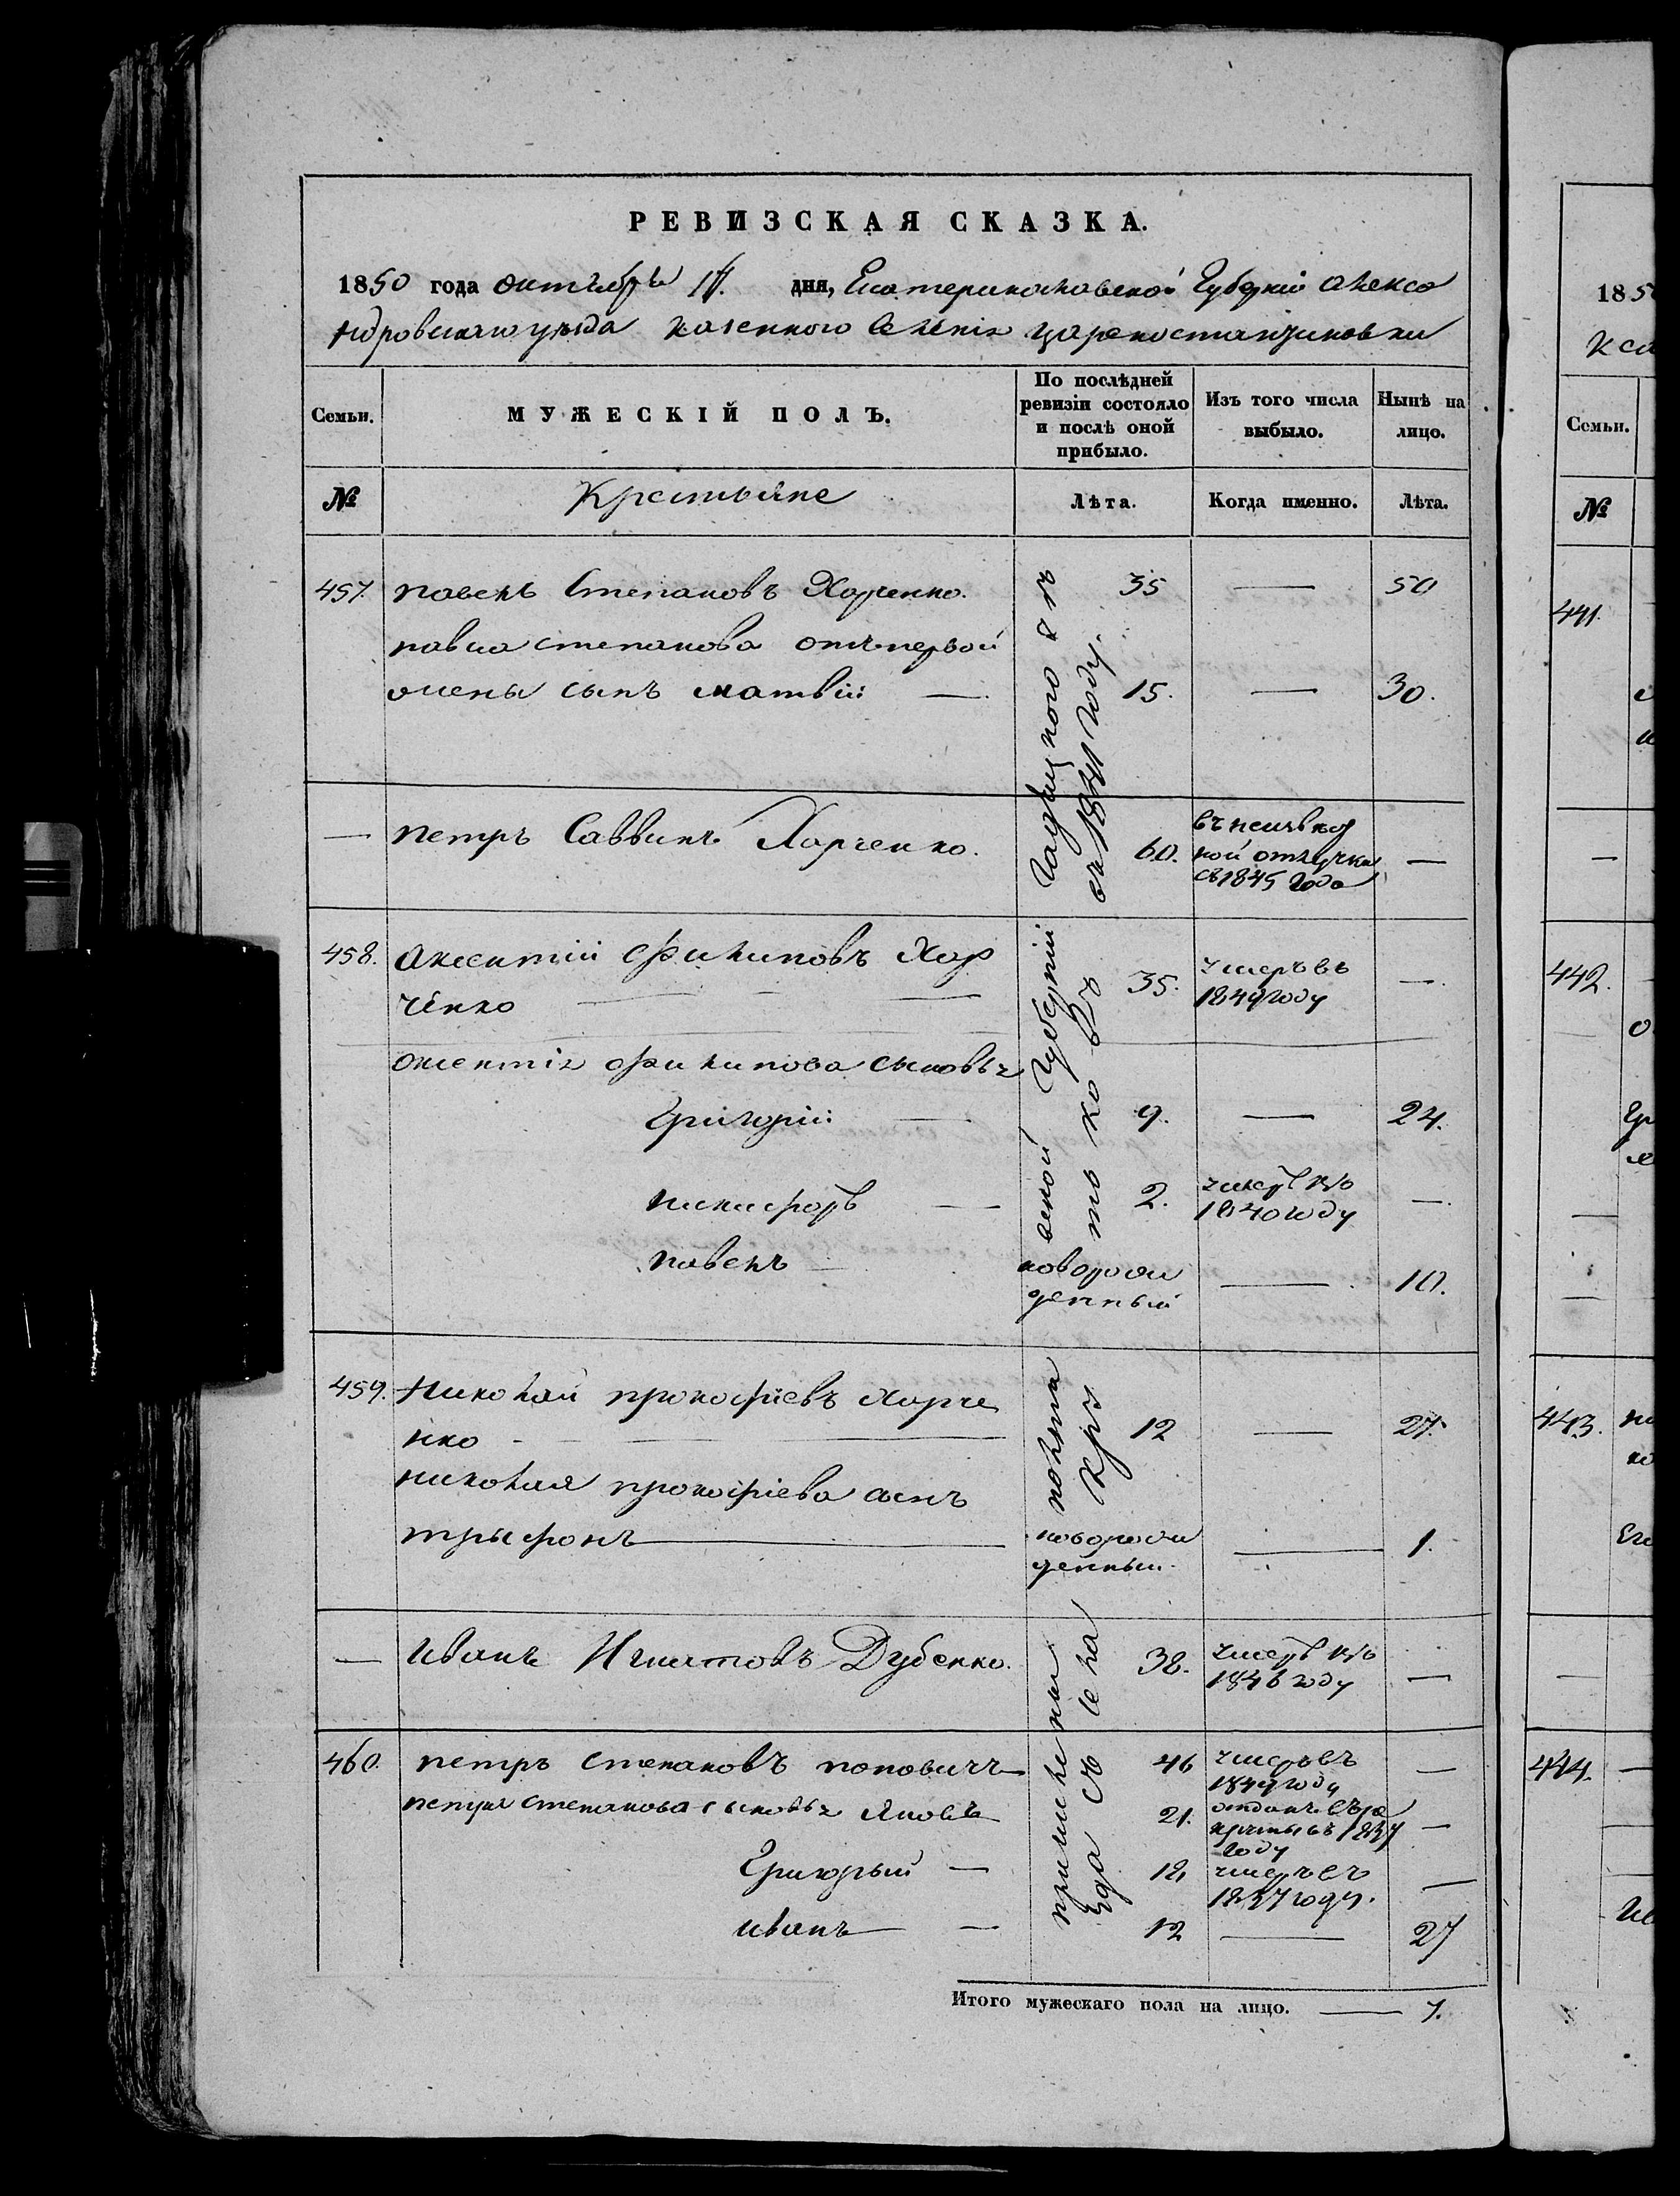 РЕВИЗСКАЯ СКАЗКА.
1850 года октября дня, Екатеринославской Губерніи Алекса
ндровскаго уезда казенного Селенія Цареконстантиновки
Семьи.
МУЖЕСКІЙ ПОЛЪ.
По послѣдней ревизіи состояло и послѣ оной прибыло.
Изъ того числа выбыло.
Нынѣ на лицо.
№
Крестьяне
Лѣта.
Когда именно.
Лѣта.
457. Павелъ Степановъ Харченко. 35 — 50
Павла Степанова отъ первой
жены сынъ Матвій — 15. — 30.
— Петръ Саввинъ Харченко. 60. въ неизвѣст
ной отлучки —
съ 1845 года
458. Аксентій Филиповъ Хар
ченко — 35. умеръ въ
1849 году —
Аксентія Филипова сыновья
Григорій — 9. — 24.
Никифоръ — 2. умеръ въ
1840 году —
Павелъ — новорож
денный — 10.
459. Николай Прокофіевъ Харче
нко — 12 — 27.
Николая Прокофіева сынъ
Трыфонъ — новорож
денный — 1.
— Иванъ Игнатовъ Дубенко. 38. умеръ въ
1846 году —
460. Петръ Степановъ Поповичъ 46 умеръ въ
1849 году —
Петра Степанова сыновья Яковъ 21. отданъ въ ре
круты въ 1837 —
году
Григорый — 18, умеръ въ
1837 году. —
Иванъ — 12 — 27
причислены Полтавской Губерніи Гадяцкого
уезда съ села въ 1841 году.
Итого мужескаго пола на лицо. — 7.
185
Семьи.
№
441.
442.
443.
444.